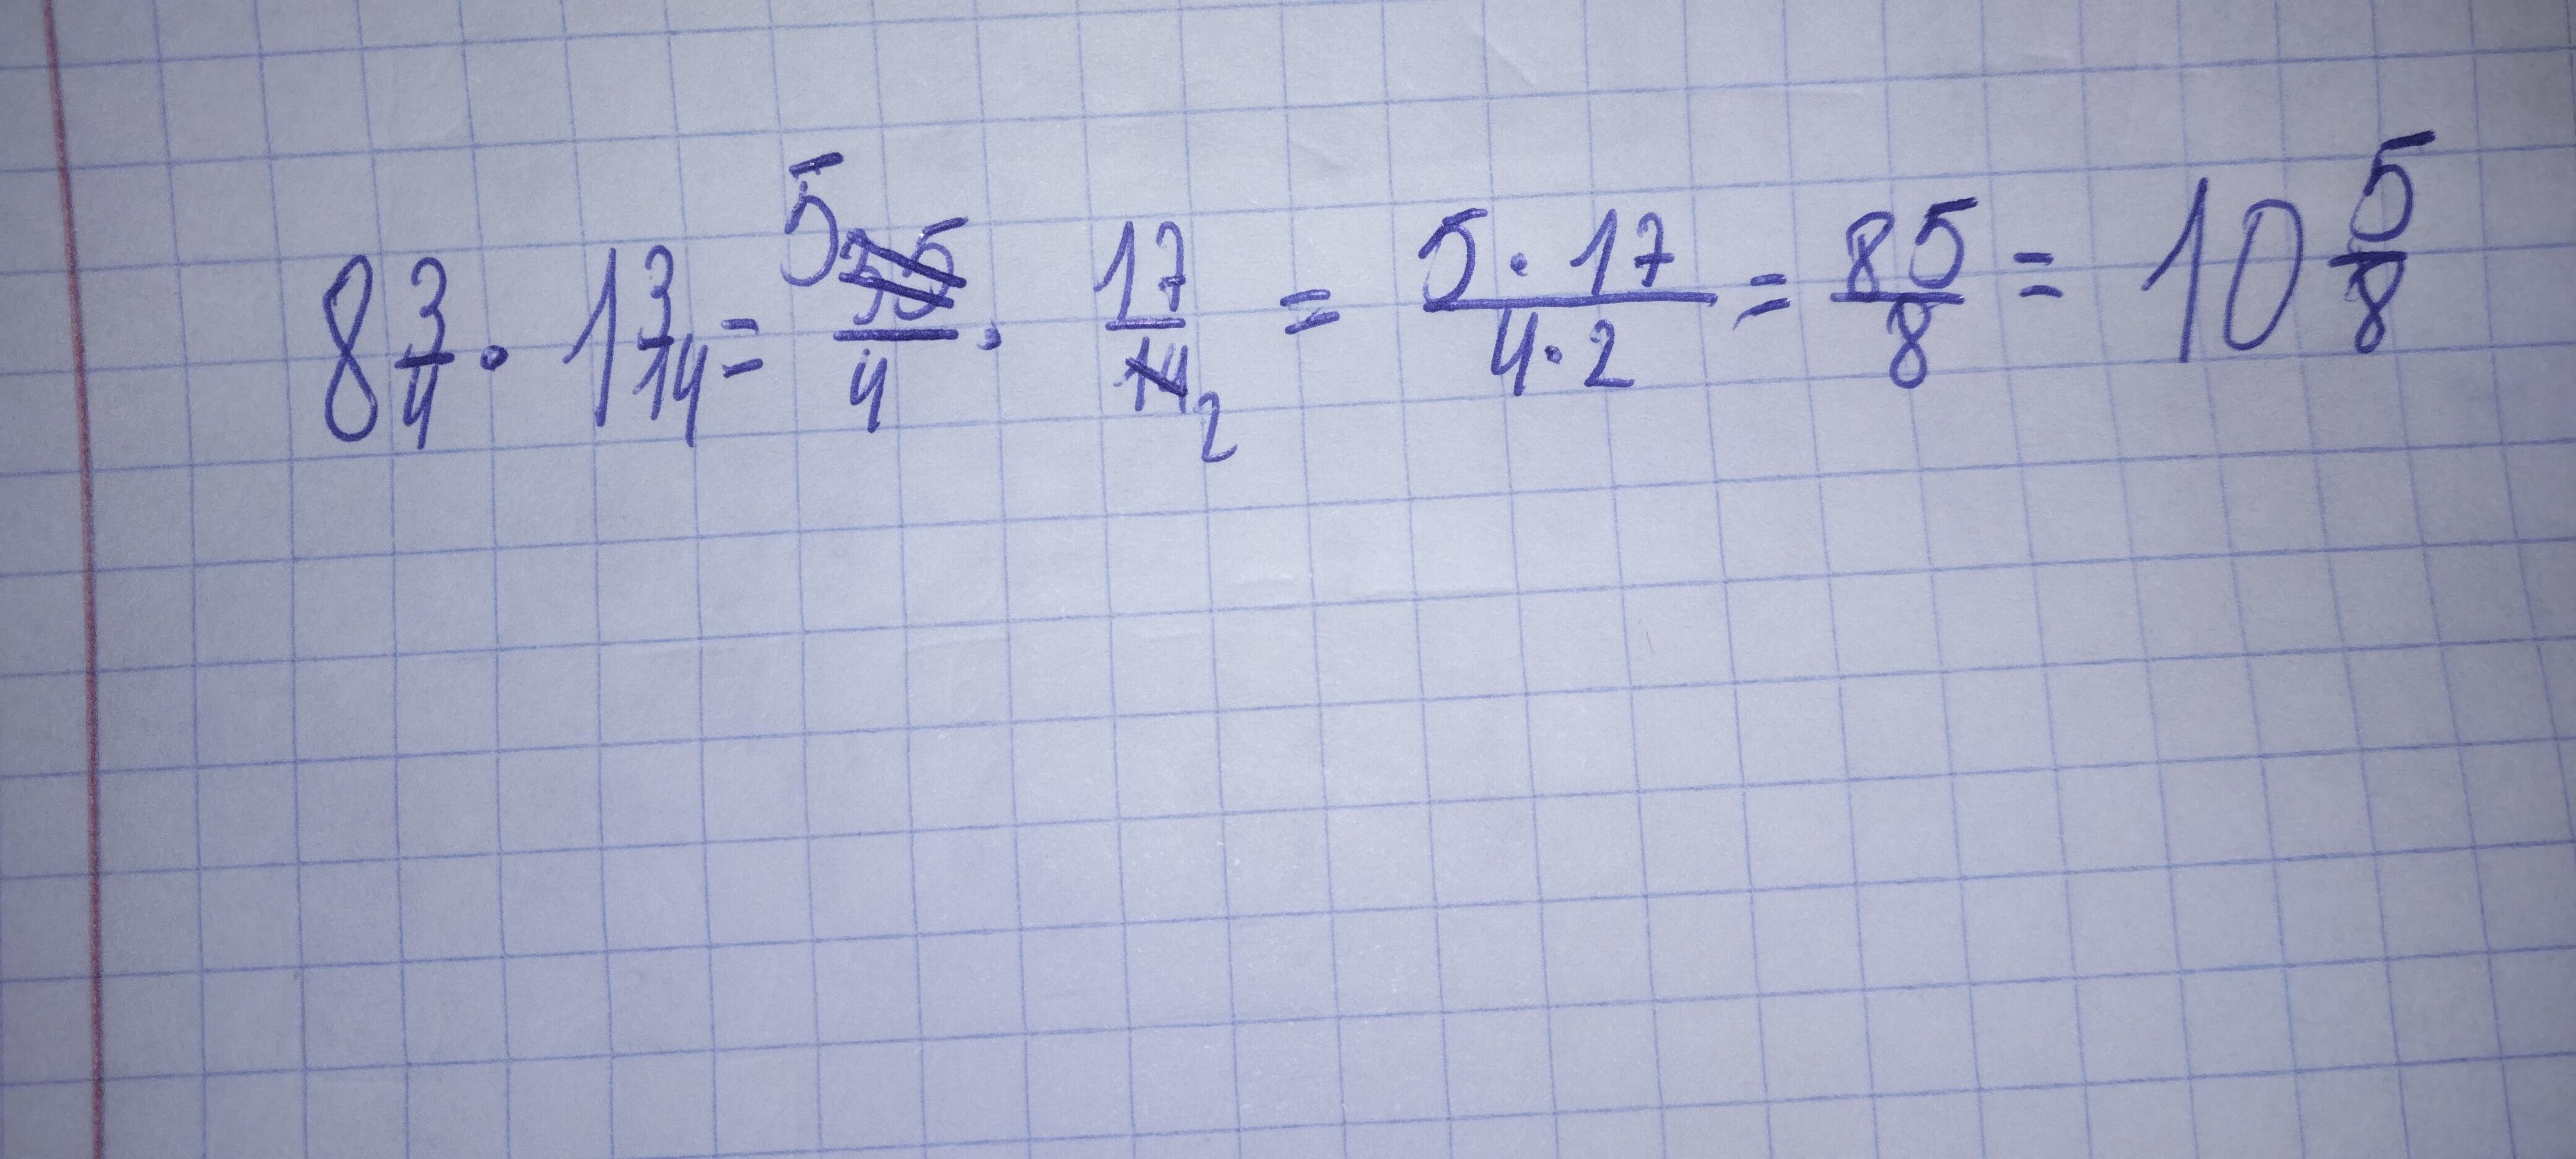 8 3/4 · 1 3/14 = 5 35/4 · 17/14 2 = 5·17/4·2 = 85/8 = 10 5/8